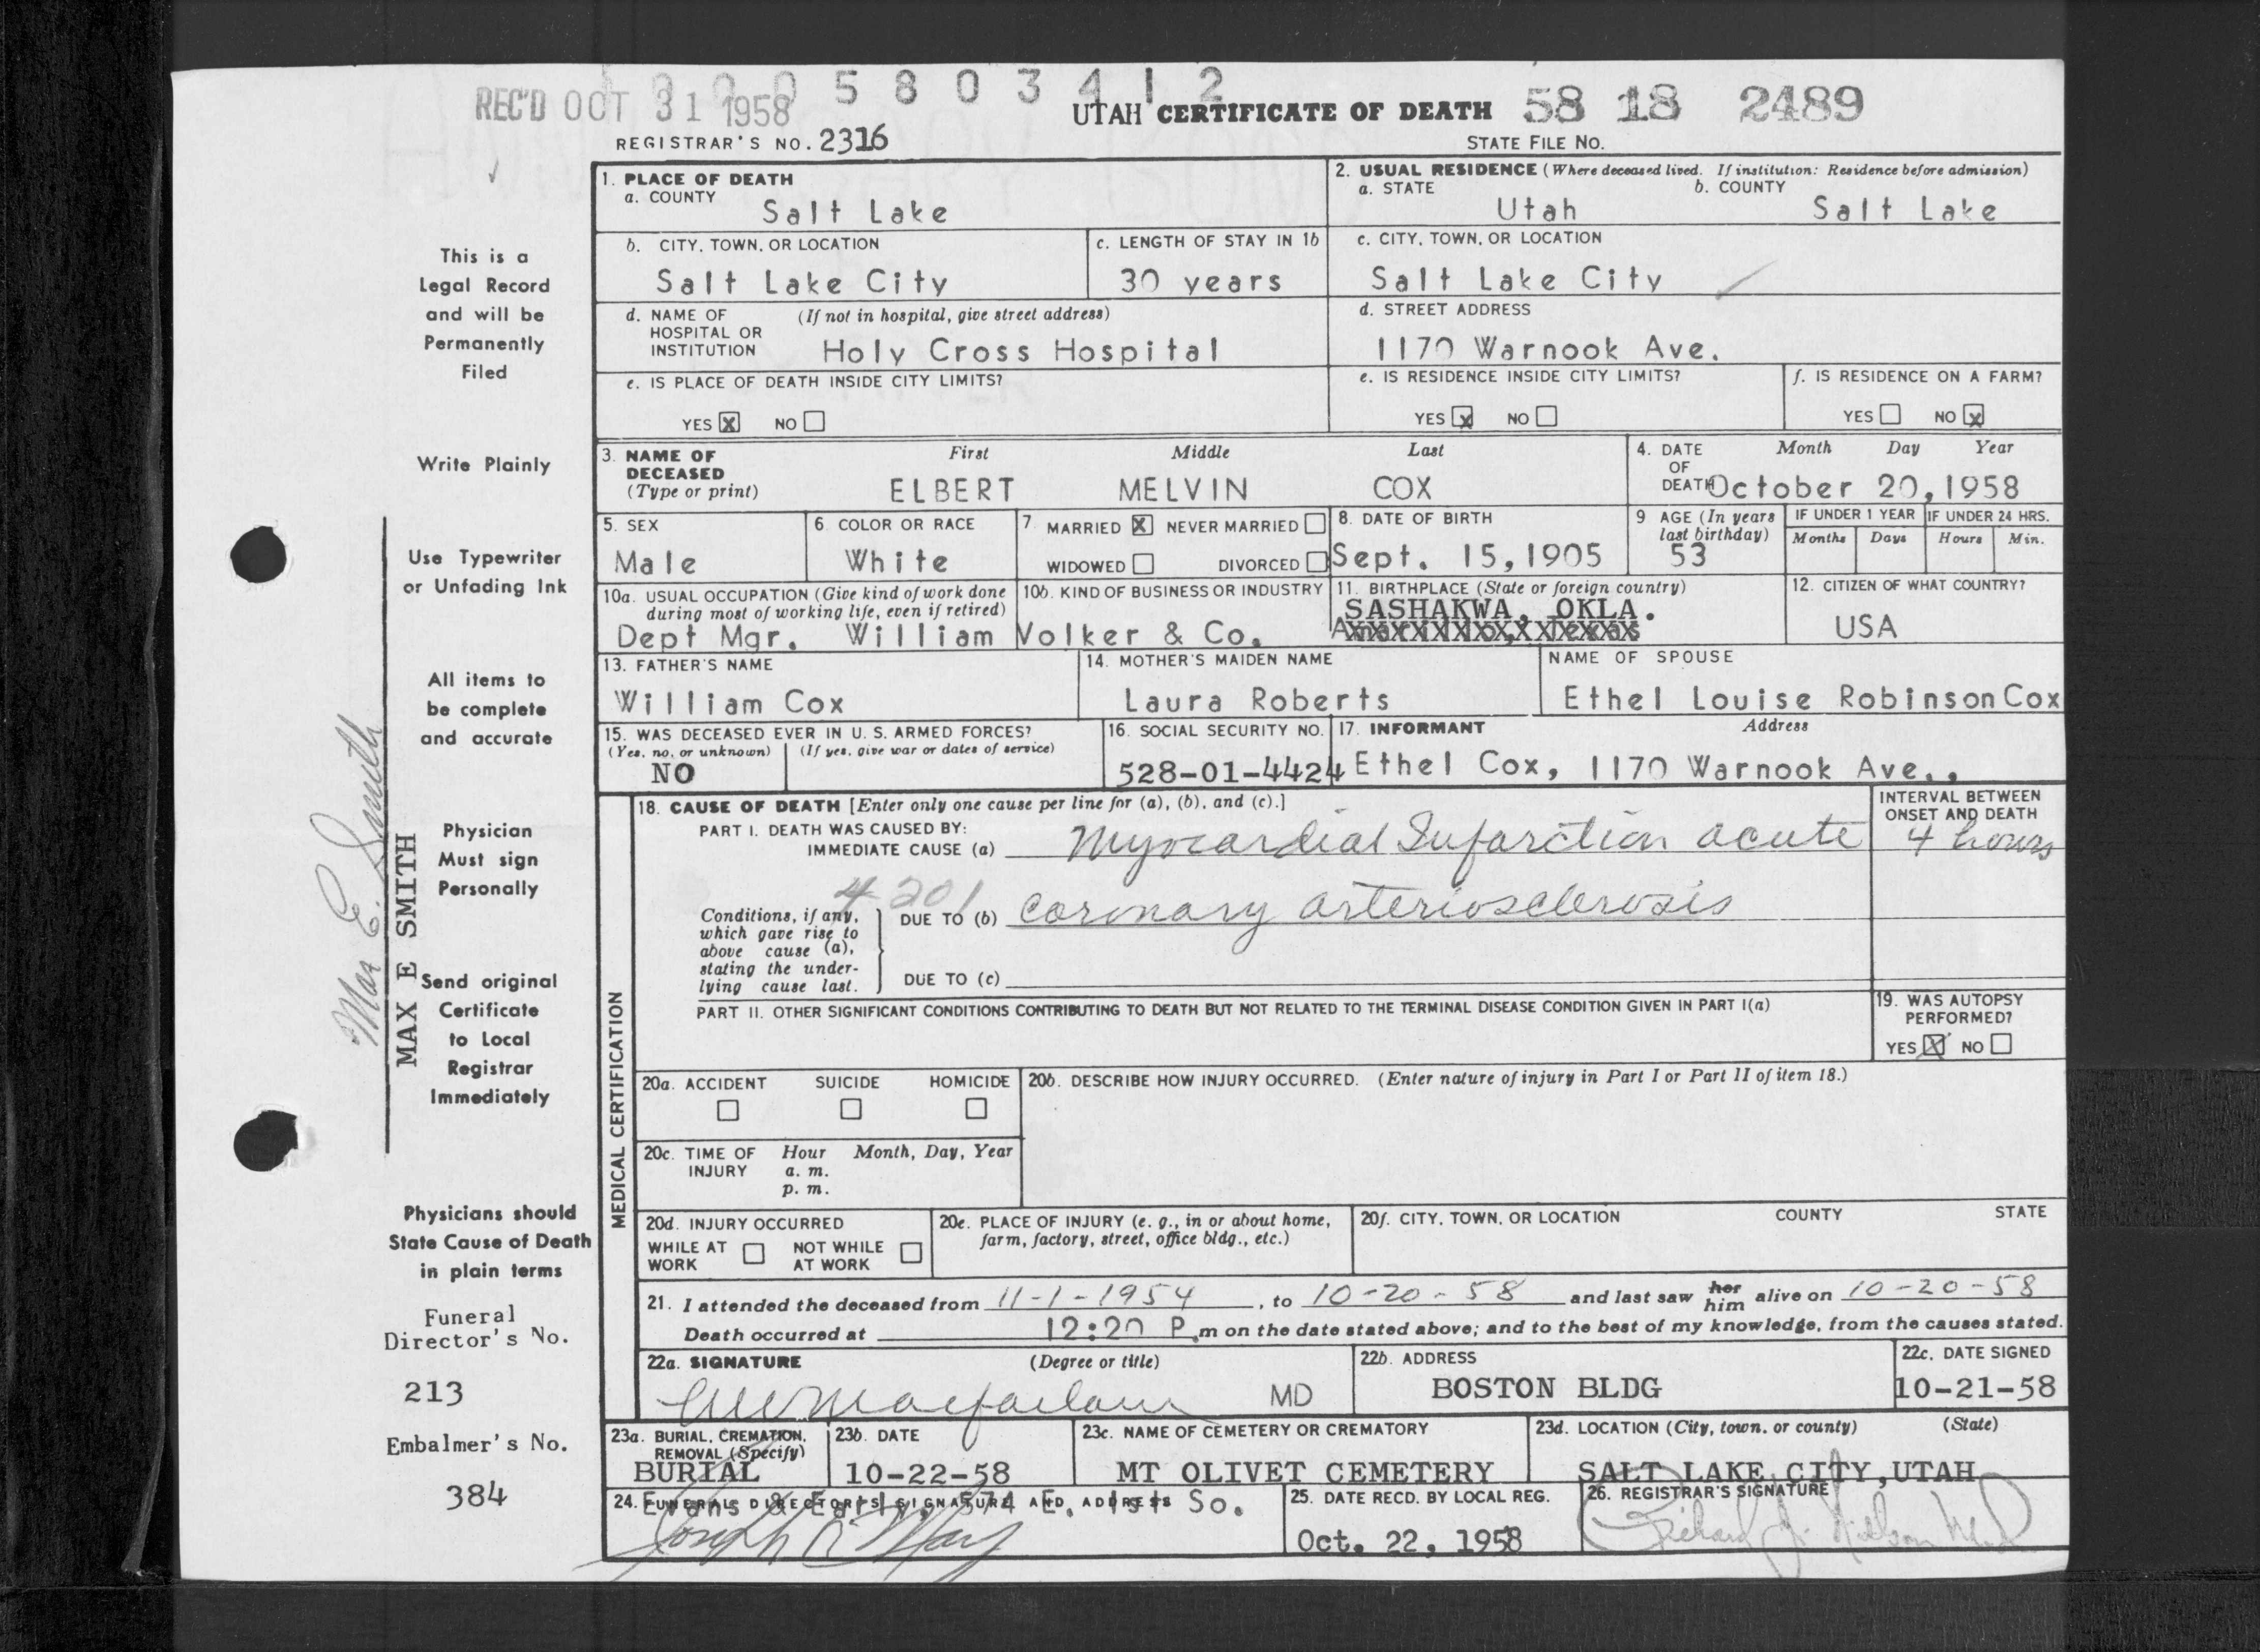 1 9 0 0 5 8 0 3 4 1 2
REC'D OCT 31 1958
UTAH CERTIFICATE OF DEATH 58 18 2489
REGISTRAR'S NO. 2316 STATE FILE NO.
1. PLACE OF DEATH
a. COUNTY Salt Lake
2. USUAL RESIDENCE (Where deceased lived. If institution: Residence before admission)
a. STATE Utah b. COUNTY Salt Lake
b. CITY, TOWN, OR LOCATION Salt Lake City
c. LENGTH OF STAY IN 1b 30 years
c. CITY, TOWN, OR LOCATION Salt Lake City
d. NAME OF HOSPITAL OR INSTITUTION (If not in hospital, give street address) Holy Cross Hospital
d. STREET ADDRESS 1170 Warnook Ave.
e. IS PLACE OF DEATH INSIDE CITY LIMITS?
YES X NO
e. IS RESIDENCE INSIDE CITY LIMITS?
YES X NO
f. IS RESIDENCE ON A FARM?
YES NO X
3. NAME OF DECEASED (Type or print)
First Middle Last
ELBERT MELVIN COX
4. DATE OF DEATH Month Day Year
October 20, 1958
5. SEX Male
6. COLOR OR RACE White
7. MARRIED X NEVER MARRIED
WIDOWED DIVORCED
8. DATE OF BIRTH Sept. 15, 1905
9 AGE (In years last birthday) 53
IF UNDER 1 YEAR Months Days
IF UNDER 24 HRS. Hours Min.
10a. USUAL OCCUPATION (Give kind of work done during most of working life, even if retired)
10b. KIND OF BUSINESS OR INDUSTRY
Dept Mgr. William Volker & Co.
11. BIRTHPLACE (State or foreign country)
SASHAKWA, OKLA.
12. CITIZEN OF WHAT COUNTRY?
USA
13. FATHER'S NAME William Cox
14. MOTHER'S MAIDEN NAME Laura Roberts
NAME OF SPOUSE Ethel Louise Robinson Cox
15. WAS DECEASED EVER IN U. S. ARMED FORCES?
(Yes, no, or unknown) (If yes, give war or dates of service)
NO
16. SOCIAL SECURITY NO. 528-01-4424
17. INFORMANT Address
Ethel Cox, 1170 Warnook Ave..
MEDICAL CERTIFICATION
18. CAUSE OF DEATH [Enter only one cause per line for (a), (b), and (c).]
INTERVAL BETWEEN ONSET AND DEATH
PART I. DEATH WAS CAUSED BY:
IMMEDIATE CAUSE (a) Myocardial Infarction acute 4 hours
4201
Conditions, if any, which gave rise to above cause (a), stating the underlying cause last.
DUE TO (b) coronary arteriosclerosis
DUE TO (c)
PART II. OTHER SIGNIFICANT CONDITIONS CONTRIBUTING TO DEATH BUT NOT RELATED TO THE TERMINAL DISEASE CONDITION GIVEN IN PART I(a)
19. WAS AUTOPSY PERFORMED?
YES X NO
20a. ACCIDENT SUICIDE HOMICIDE
20b. DESCRIBE HOW INJURY OCCURRED. (Enter nature of injury in Part I or Part II of item 18.)
20c. TIME OF INJURY Hour Month, Day, Year
a. m.
p. m.
20d. INJURY OCCURRED
WHILE AT WORK NOT WHILE AT WORK
20e. PLACE OF INJURY (e. g., in or about home, farm, factory, street, office bldg., etc.)
20f. CITY, TOWN, OR LOCATION COUNTY STATE
21. I attended the deceased from 11-1-1954, to 10-20-58 and last saw her him alive on 10-20-58
Death occurred at 12:20 P.m on the date stated above; and to the best of my knowledge, from the causes stated.
22a. SIGNATURE (Degree or title)
Macfarlane MD
22b. ADDRESS BOSTON BLDG
22c. DATE SIGNED 10-21-58
23a. BURIAL, CREMATION, REMOVAL (Specify) BURIAL
23b. DATE 10-22-58
23c. NAME OF CEMETERY OR CREMATORY MT OLIVET CEMETERY
23d. LOCATION (City, town, or county) (State)
SALT LAKE CITY, UTAH
24. FUNERAL DIRECTOR'S SIGNATURE AND ADDRESS
Evans & Early, 574 E. 1st So.
Joseph
25. DATE RECD. BY LOCAL REG. Oct. 22, 1958
26. REGISTRAR'S SIGNATURE
Richard
This is a
Legal Record
and will be
Permanently
Filed
Write Plainly
Use Typewriter
or Unfading Ink
All items to
be complete
and accurate
Physician
Must sign
Personally
Send original
Certificate
to Local
Registrar
Immediately
Physicians should
State Cause of Death
in plain terms
Funeral
Director's No.
213
Embalmer's No.
384
Max E. Smith
MAX E SMITH